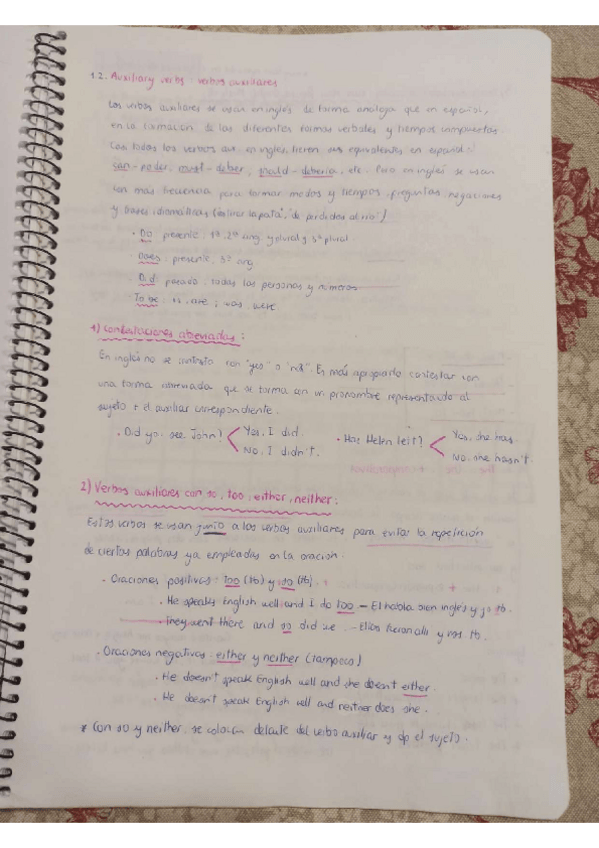 1.2. Auxiliary verbs: verbos auxiliares
Los verbos auxiliares se usan en inglés de forma análoga que en español,
en la formación de las diferentes formas verbales y tiempos compuestos.
Casi todos los verbos aux en inglés, tienen sus equivalentes en español:
can-poder, must-deber, should-debería, etc. Pero en inglés se usan
con más frecuencia para formar modos y tiempos, preguntas, negaciones
y frases idiomáticas (estirar la pata, de perdidos al río)
· Do presente: 1ª, 2ª sing y plural y 3ª plural
· Does: presente, 3ª sing
· Did: pasado: todas las personas y números
· To be: is, are; was, were.
1) Contestaciones abreviadas:
En inglés no se contesta con "yes" o "not". Es más apropiado contestar con
una forma abreviada que se forma con un pronombre representando al
sujeto + el auxiliar correspondiente.
· Did you see John? Yes, I did.
No, I didn't.
· Has Helen left? Yes, she has.
No, she hasn't
2) Verbos auxiliares con so, too, either, neither:
Estos verbos se usan junto a los verbos auxiliares para evitar la repetición
de ciertas palabras ya empleadas en la oración.
· Oraciones positivas: too (tb) y so (tb).
· He speaks English well and I do too - El habla bien inglés y yo tb.
· They went there and so did we. - Ellos fueron allí y nos. tb.
· Oraciones negativas: either y neither (tampoco)
· He doesn't speak English well and she doesn't either.
· He doesn't speak English well and neither does she.
* Con so y neither, se colocan delante del verbo auxiliar y dp el sujeto.